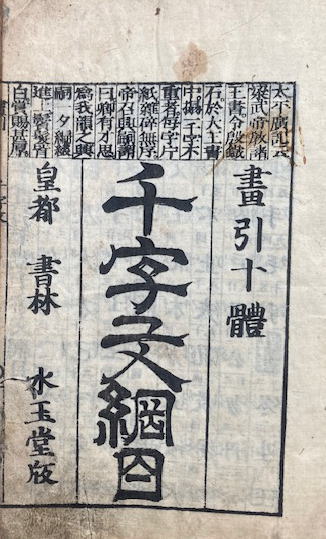 太平廣記云
梁武帝教諸
王書令殷鐵
石於大王書
中搨一千字不
重者每字片
紙雜碎無序
帝召興嗣謂
曰卿有才思
爲我韻之興
嗣一夕編綴
進上鬢髮皆
白賞賜甚厚
畫引十體
千字文綱目
皇都 書林 水玉堂版